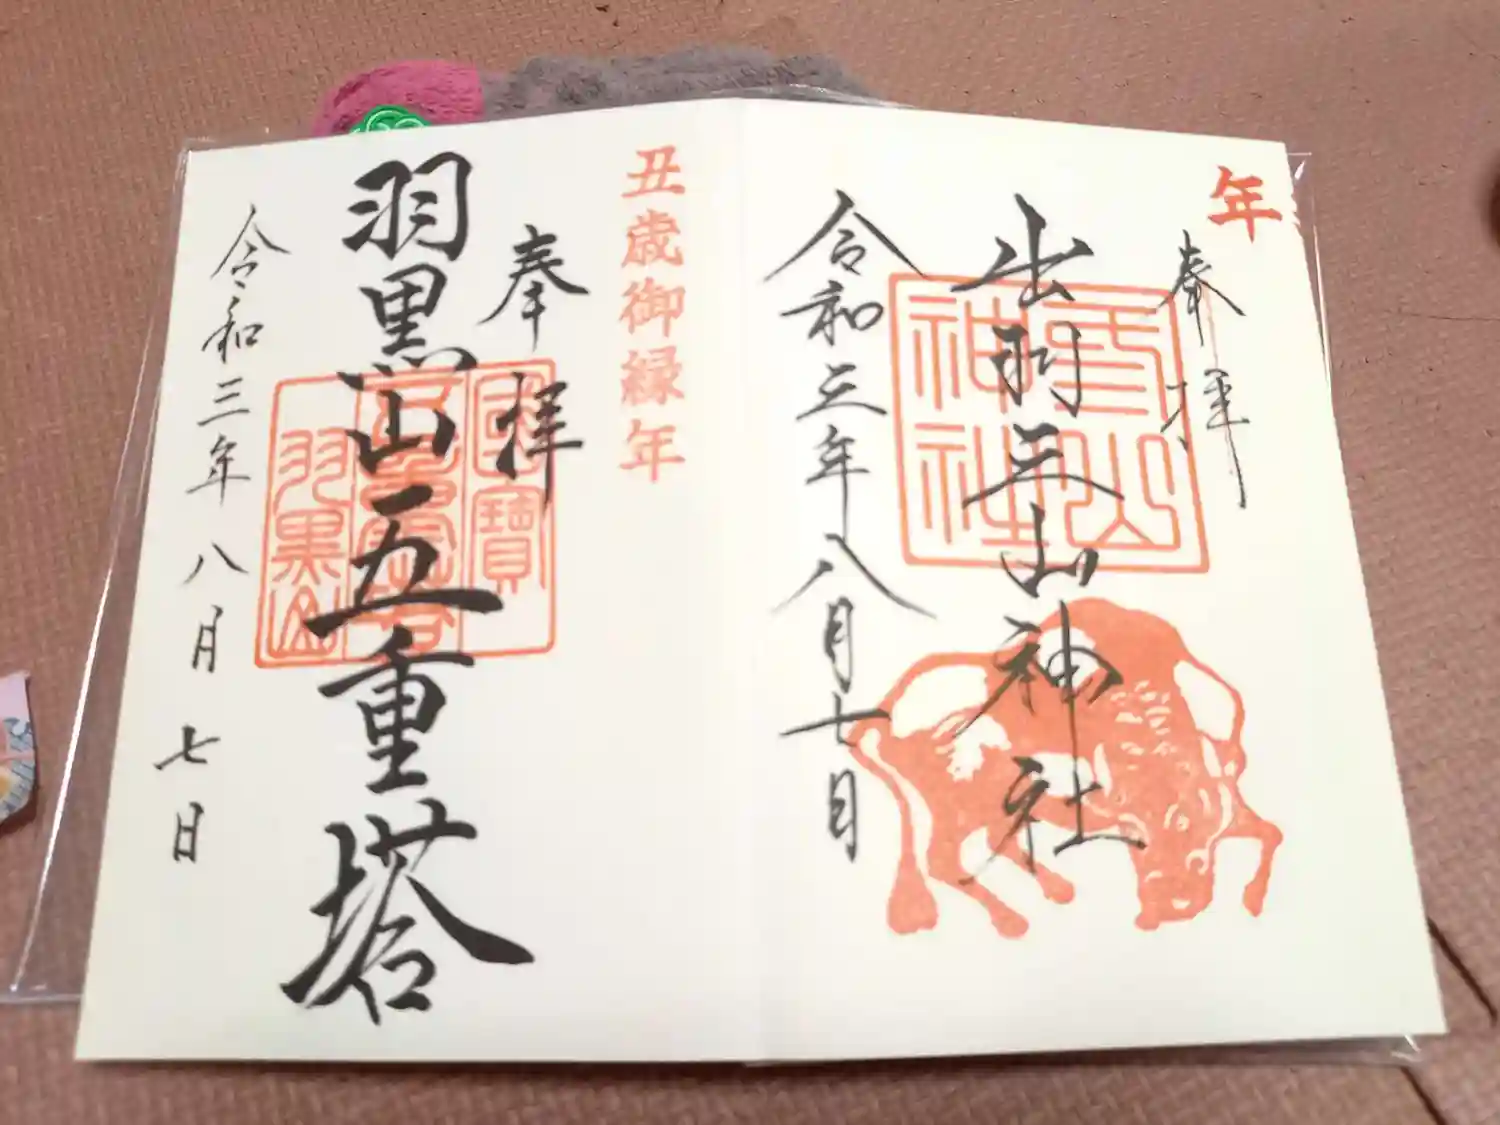 年
奉拝
出羽三山神社
令和三年八月七日
三山
神社
丑歳御縁年
奉拝
羽黒山五重塔
令和三年八月七日
國寶
羽黒山